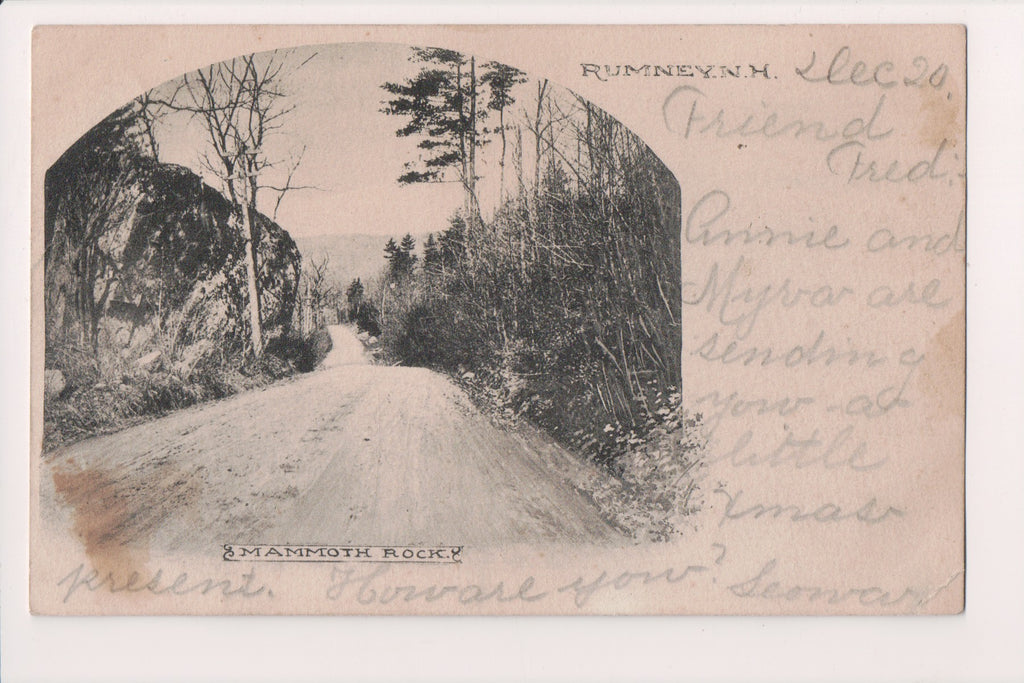 RUMNEY, N.H. Dec 20,
Friend
Fred:
Annie and
Myra are
sending
you a
little
Xmas
present. How are you?
MAMMOTH ROCK.